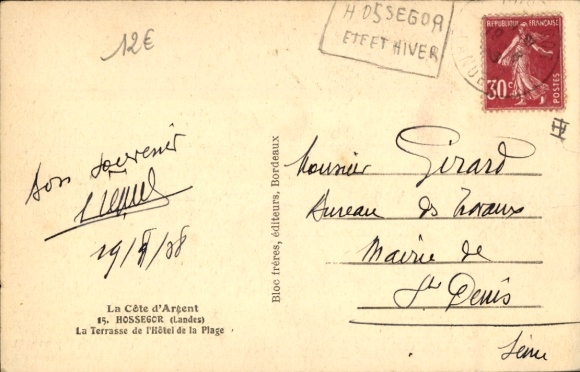 12€
HOSSEGOR
ETE ET HIVER
REPUBLIQUE FRANÇAISE
30c
Bon souvenir
La Côte d'Argent
15. HOSSEGOR (Landes)
La Terrasse de l'Hôtel de la Plage
Bloc frères, éditeurs, Bordeaux
Monsieur Girard
Bureau des Travaux
Mairie de
St Denis
Seine